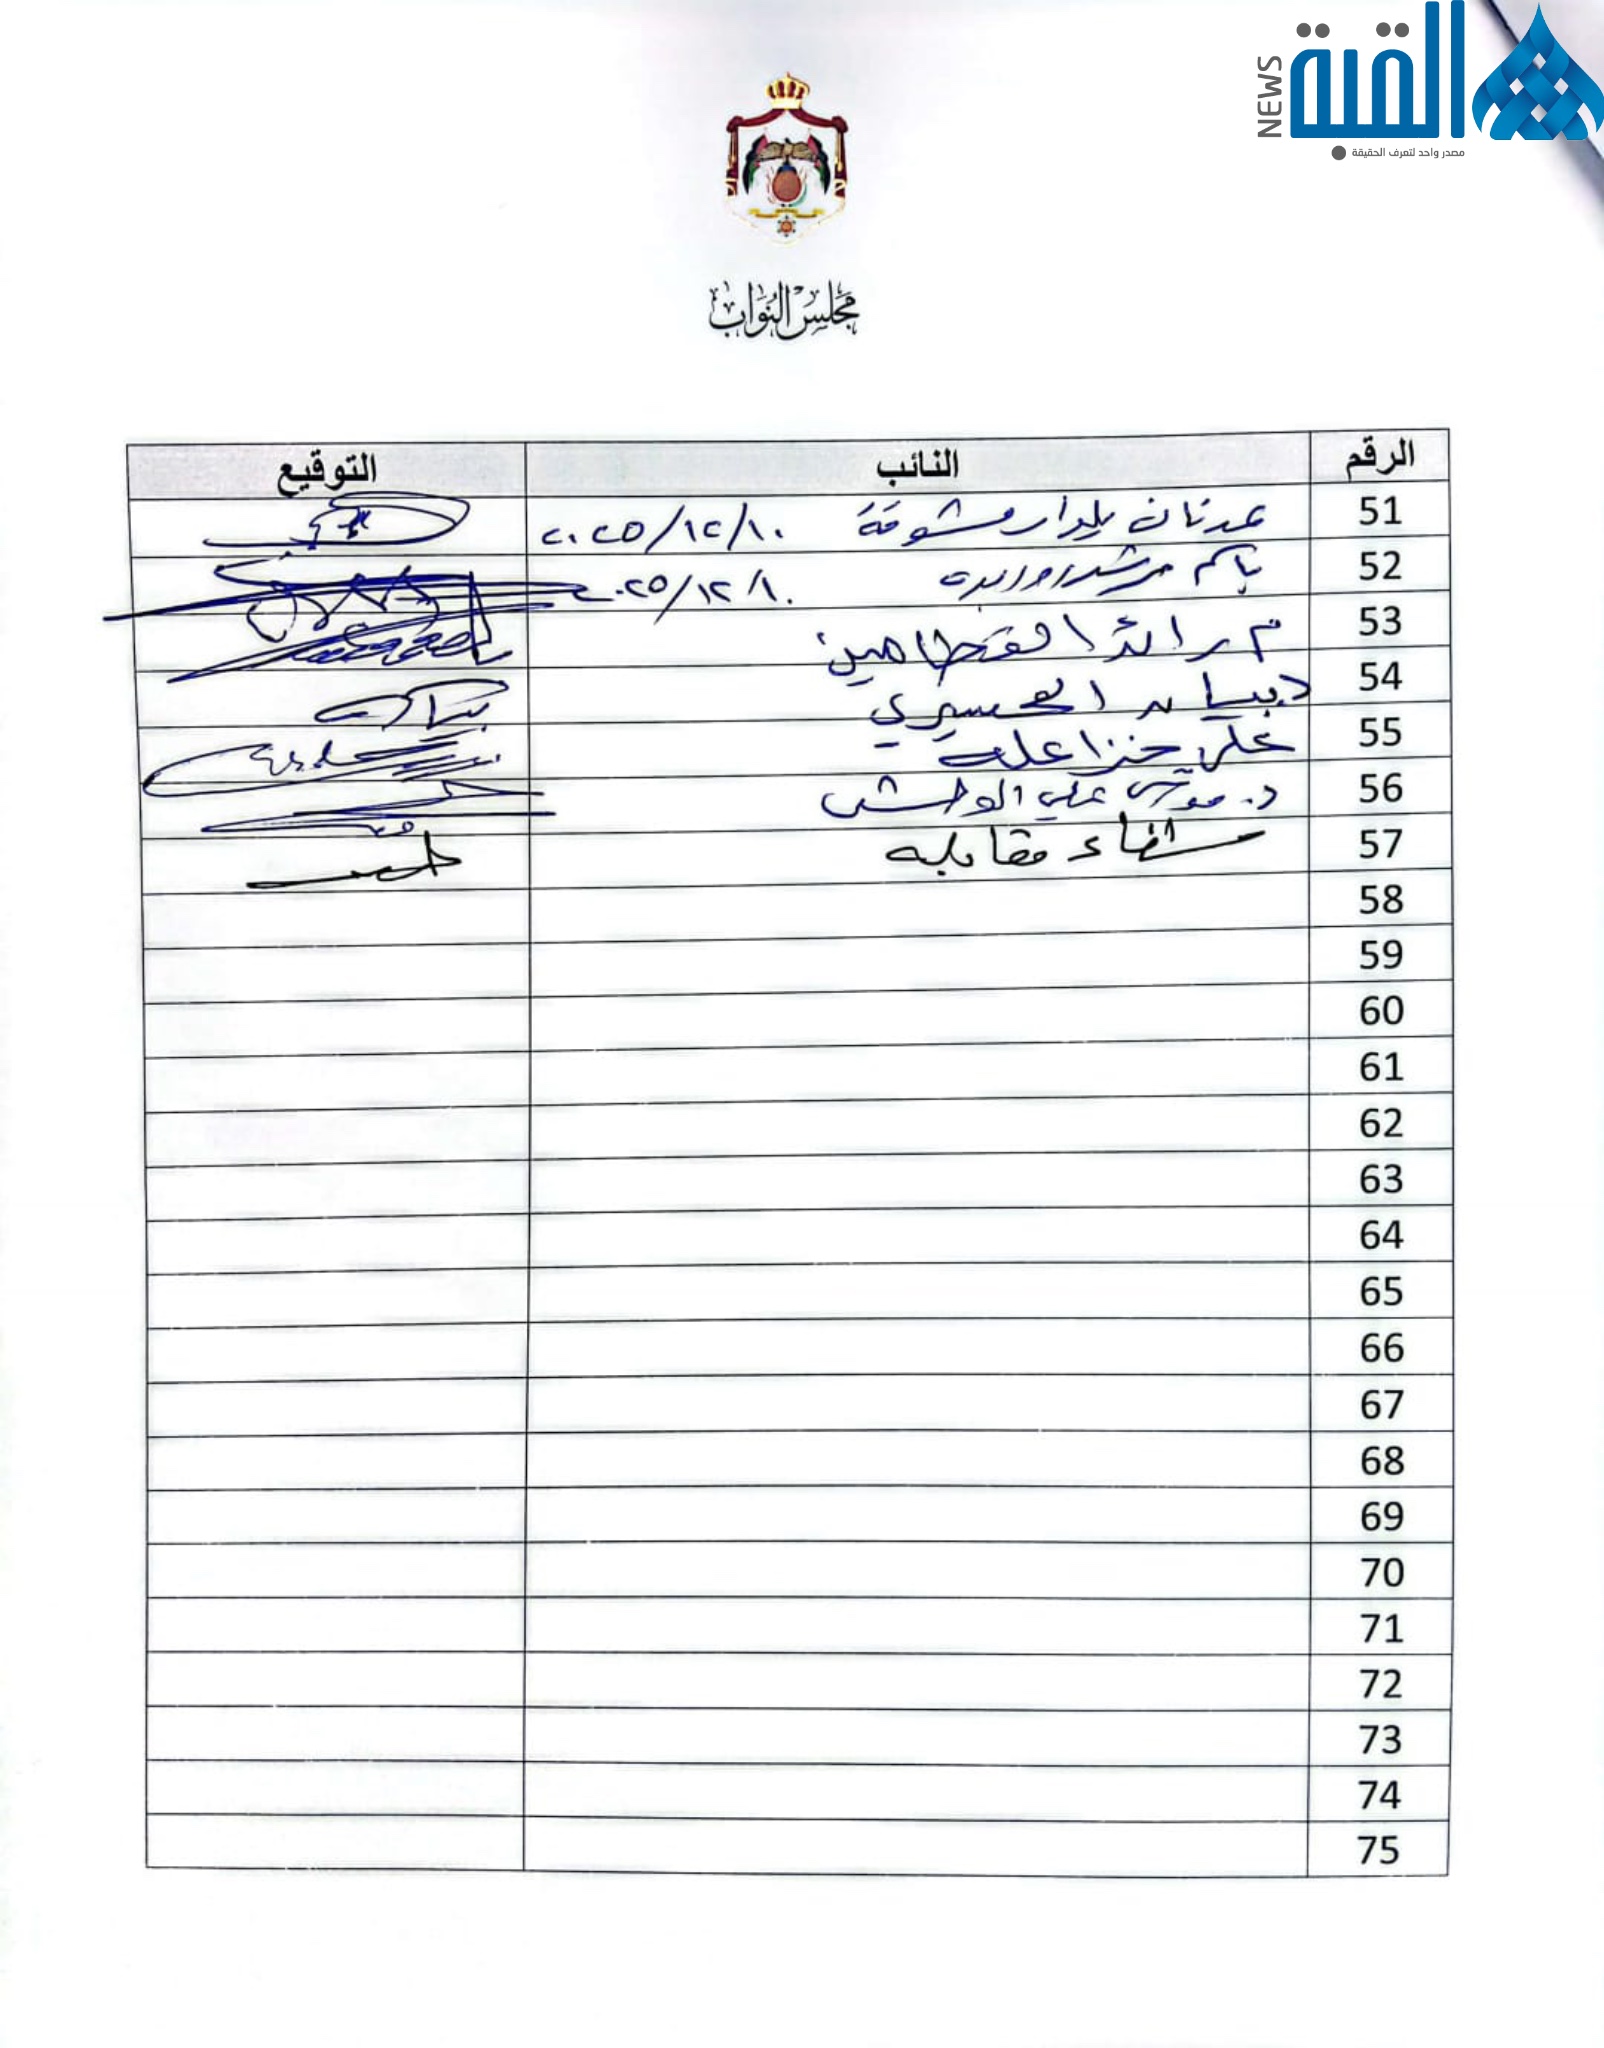 القبة
NEWS
مصدر واحد لتعرف الحقيقة
مجلس النواب
الرقم النائب التوقيع
51 عدنان يلدار مشوقة ٢٠٢٥/١٢/١٠
52 باسم ٢٠٢٥/١٢/١٠
53 م. رائد القطامين
54 د. بيان المحسيري بيان
55 علي خزاعله
56 د. موسى علي الوحش
57 شفاء مقابله
58
59
60
61
62
63
64
65
66
67
68
69
70
71
72
73
74
75